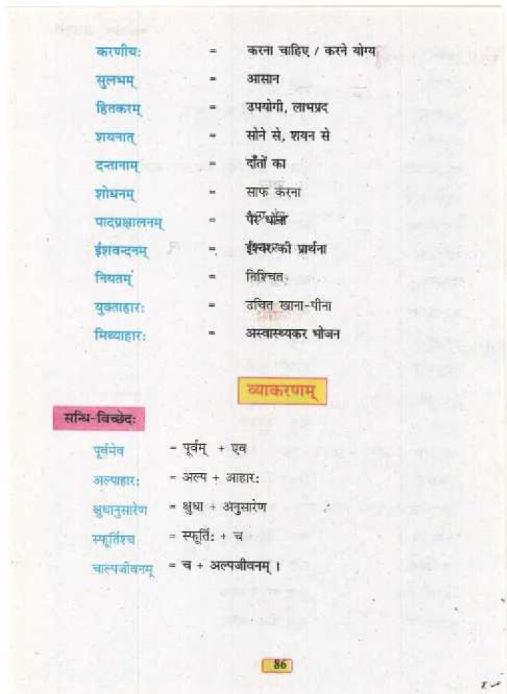 करणीयः = करना चाहिए / करने योग्य
सुलभम् = आसान
हितकरम् = उपयोगी, लाभप्रद
शयनात् = सोने से, शयन से
दन्तानाम् = दाँतों का
शोधनम् = साफ करना
पादप्रक्षालनम् = पैर धोना
ईशवन्दनम् = ईश्वर की प्रार्थना
नियतम् = निश्चित
युक्ताहारः = उचित खाना-पीना
मिथ्याहारः = अस्वास्थ्यकर भोजन
व्याकरणम्
सन्धि-विच्छेदः
पूर्वमेव = पूर्वम् + एव
अल्पाहारः = अल्प + आहारः
क्षुधानुसारेण = क्षुधा + अनुसारेण
स्फूर्तिश्च = स्फूर्तिः + च
चाल्पजीवनम् = च + अल्पजीवनम् ।
86